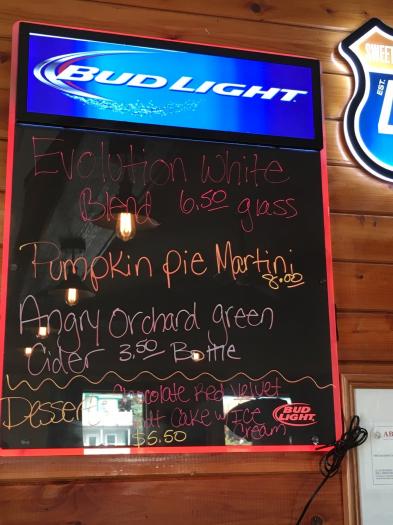 BUD LIGHT
SWEET
EST.
Evolution White
Blend 6.50 glass
Pumpkin pie Martini
8.00
Angry Orchard green
Cider 3.50 Bottle
Chocolate Red Velvet
Cake w/ Ice
Cream
$5.50
BUD LIGHT